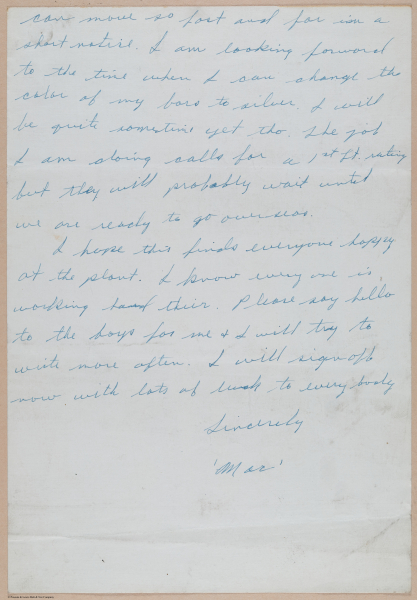 can move so fast and far in a
short notice. I am looking forward
to the time when I can change the
color of my bars to silver. I will
be quite sometime yet tho. The job
I am doing calls for a 1st Lt. rating
but they will probably wait until
we are ready to go overseas.
I hope this finds everyone happy
at the plant. I know every one is
working hard their. Please say hello
to the boys for me & I will try to
write more often. I will sign off
now with lots of luck to everybody
Sincerely
'Mac'